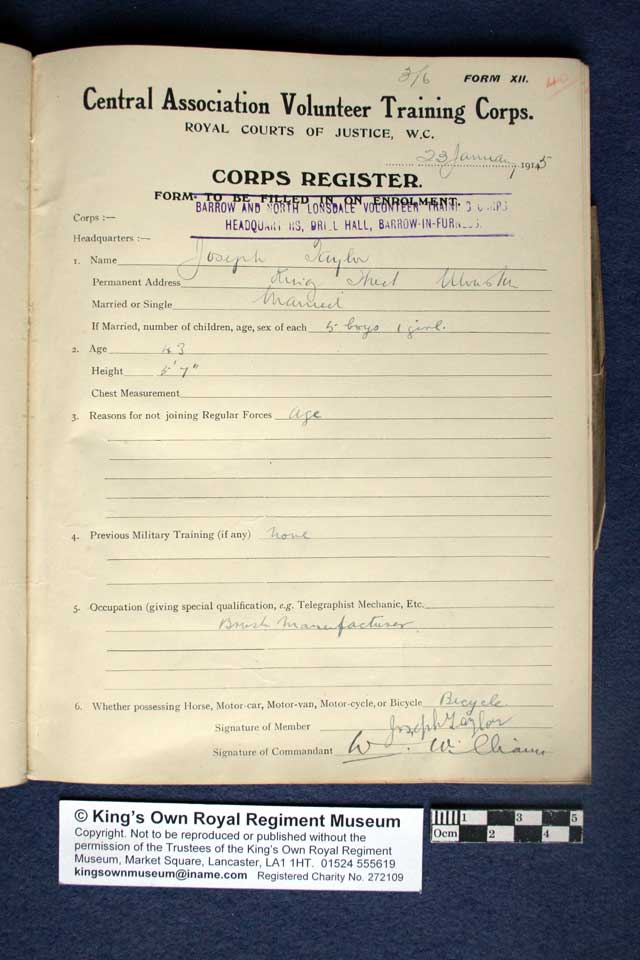 3/6 FORM XII. 40
Central Association Volunteer Training Corps.
ROYAL COURTS OF JUSTICE, W.C.
23 January 1915
CORPS REGISTER.
FORM TO BE FILLED IN ON ENROLMENT.
BARROW AND NORTH LONSDALE VOLUNTEER TRAINING CORPS
Corps :—
HEADQUARTERS, DRILL HALL, BARROW-IN-FURNESS.
Headquarters :—
1. Name Joseph Taylor
Permanent Address King Street Ulverston
Married or Single Married
If Married, number of children, age, sex of each 5 boys 1 girl.
2. Age 43
Height 5' 7"
Chest Measurement
3. Reasons for not joining Regular Forces age
4. Previous Military Training (if any) none
5. Occupation (giving special qualification, e.g. Telegraphist Mechanic, Etc.
Brush Manufacturer
6. Whether possessing Horse, Motor-car, Motor-van, Motor-cycle, or Bicycle Bicycle
Signature of Member Joseph Taylor
Signature of Commandant W. Williams
© King's Own Royal Regiment Museum
Copyright. Not to be reproduced or published without the
permission of the Trustees of the King's Own Royal Regiment
Museum, Market Square, Lancaster, LA1 1HT. 01524 555619
kingsownmuseum@iname.com Registered Charity No. 272109
1 3 5
0cm 2 4